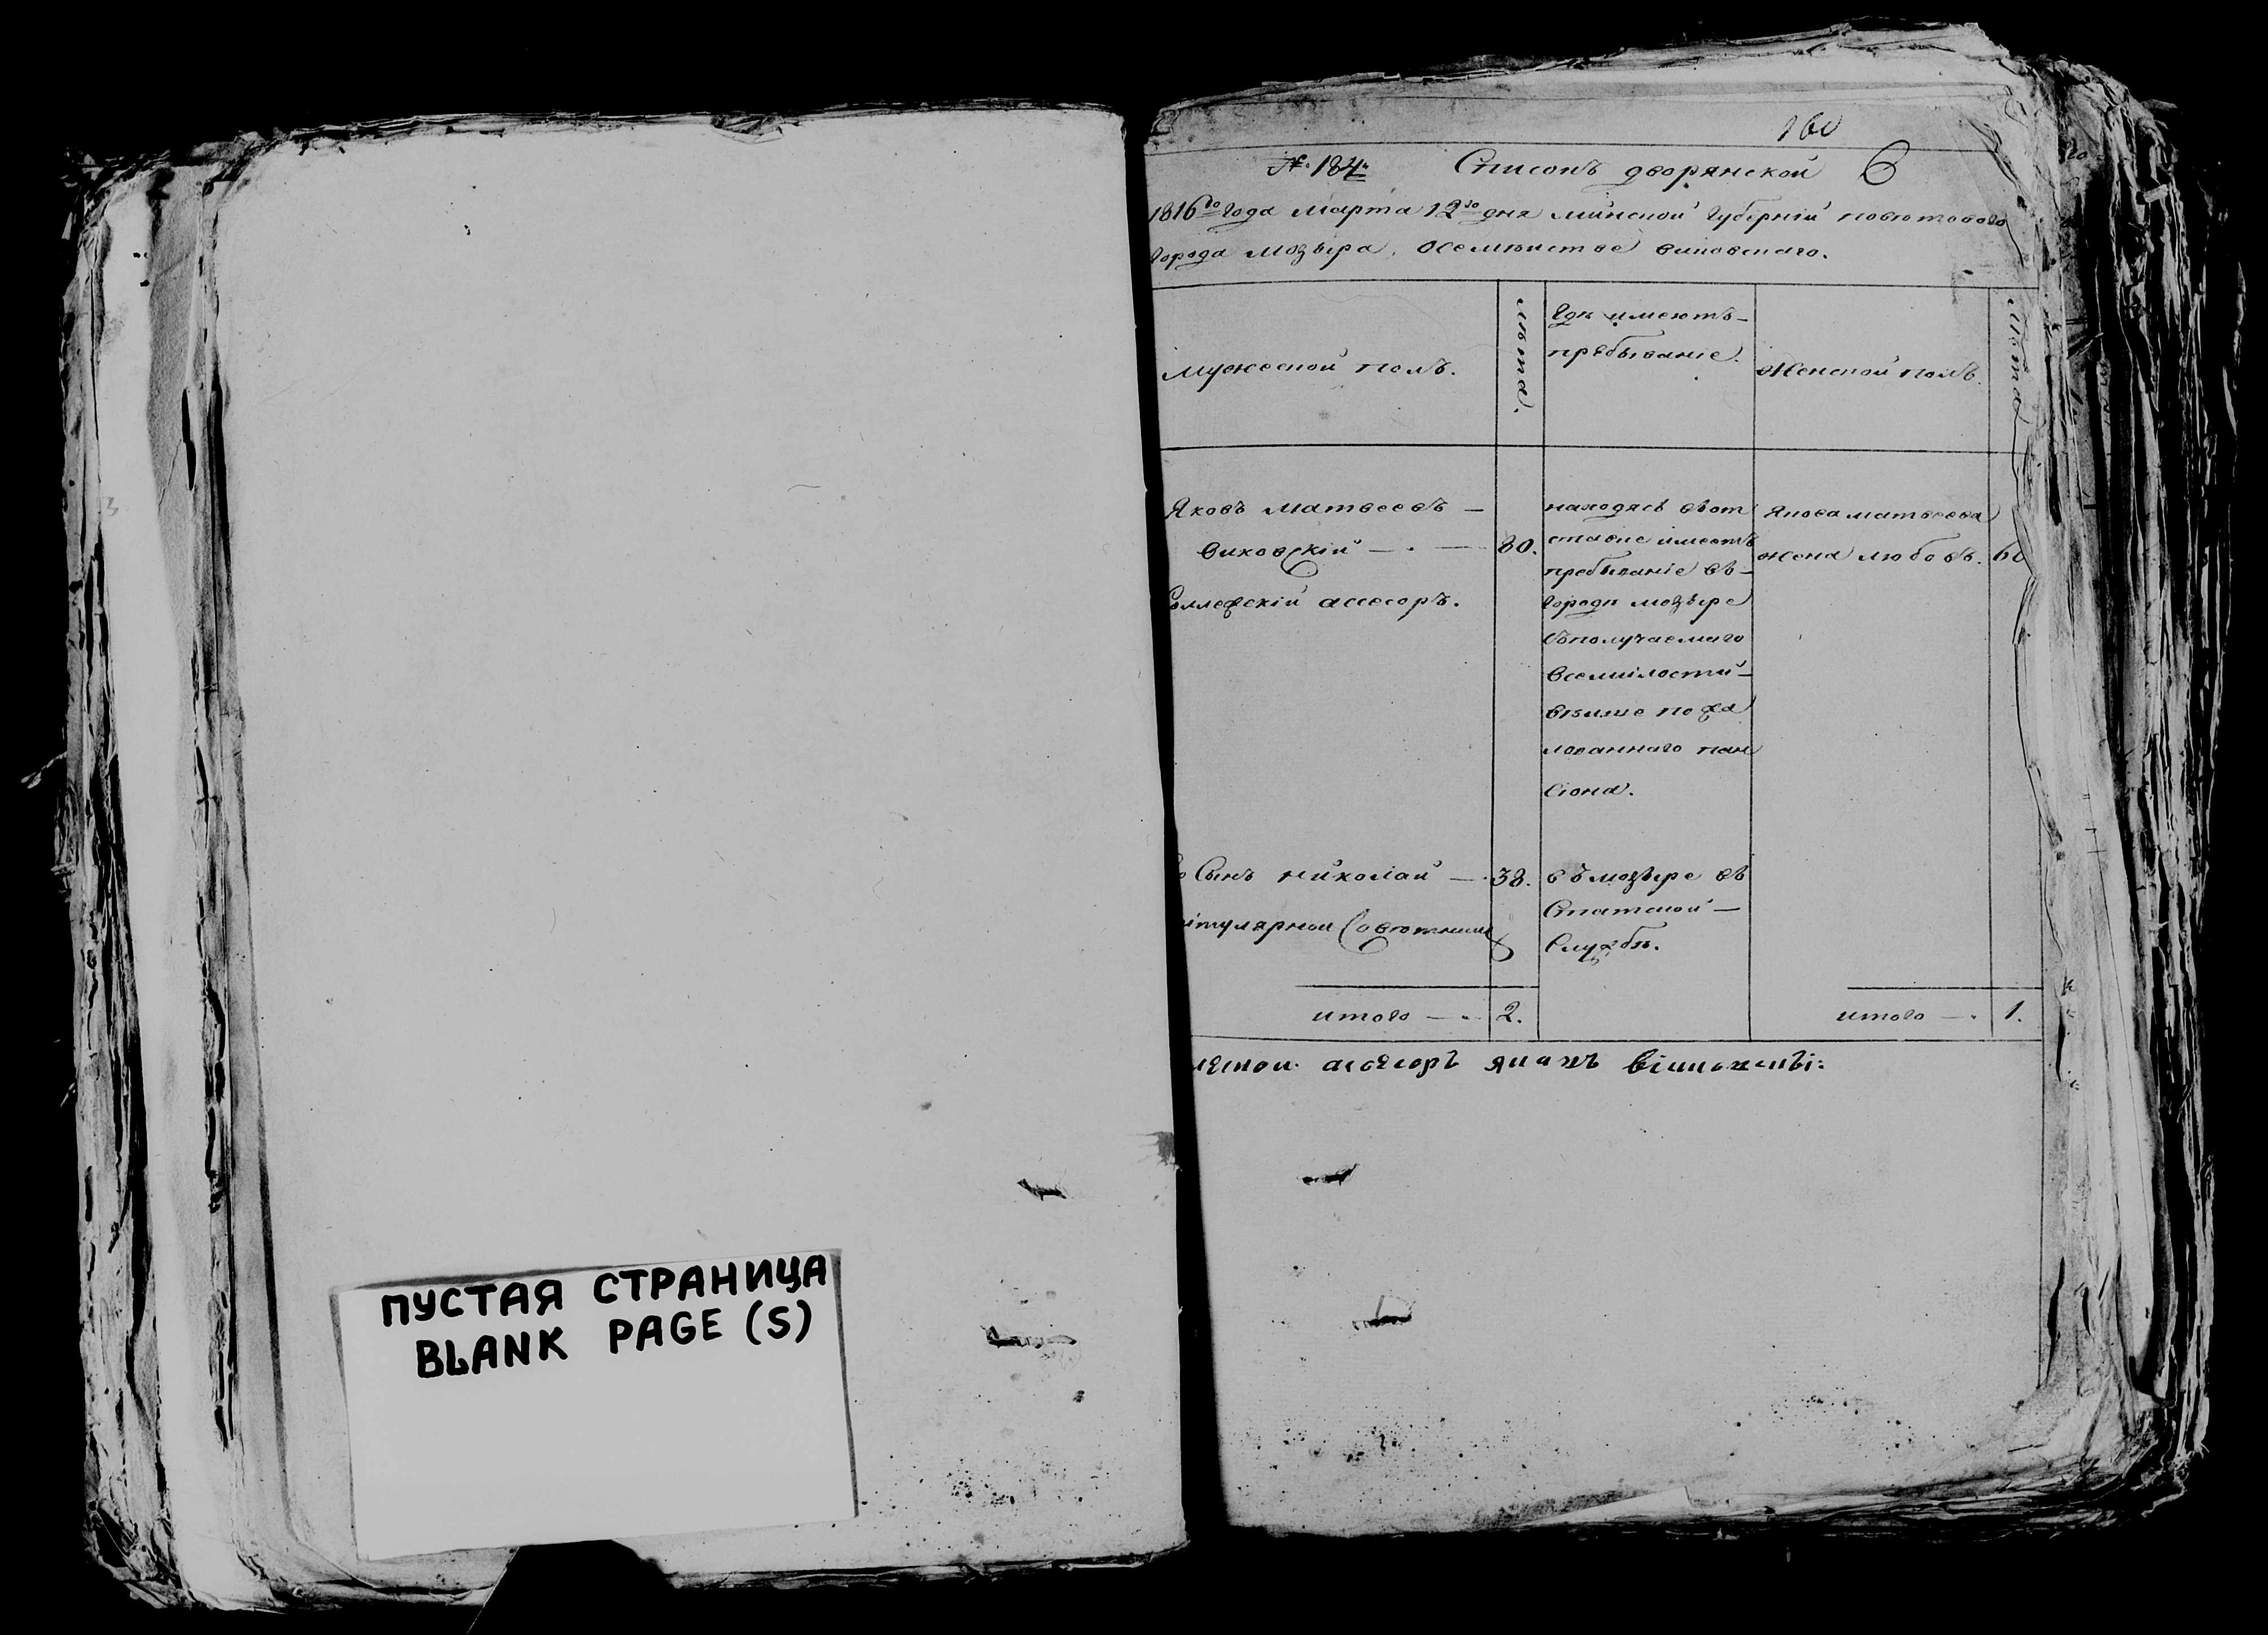 160
№ 184. Списокъ дворянской 6
1816го года марта 12го дня минской губерніи повѣтоваго
города мозыра, осемѣистве виковскаго.
мужеской полъ.
лѣта.
гдѣ имеютъ
пребываніе.
Женской полъ.
лѣта
Яковъ матвеевъ —
виковскій — . — 80.
Коллежскій ассесоръ.
находясь въот
ставке имеетъ
пребываніе въ
городѣ мозыре
съполучаемаго
всемилостий
вѣише пожа
лованнаго пан
сіона.
якова матвеева
жена любовъ. 60
Сынъ николай — 38.
титулярной Советникъ
въмозыре въ
статской —
службѣ.
итого — 2.
итого — 1.
ассесоръ
ПУСТАЯ СТРАНИЦА
BLANK PAGE (S)